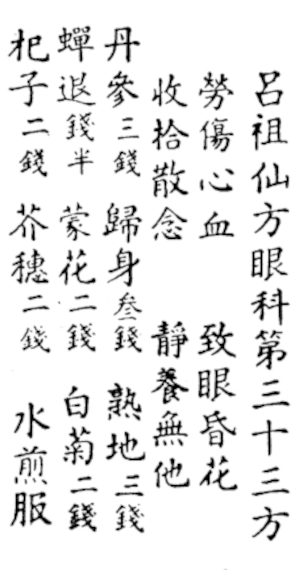 呂祖仙方眼科第三十三方
勞傷心血 致眼昏花
收拾散念 靜養無他
丹參三錢 歸身叁錢 熟地三錢
蟬退錢半 蒙花二錢 白菊二錢
杞子二錢 芥穗二錢 水煎服